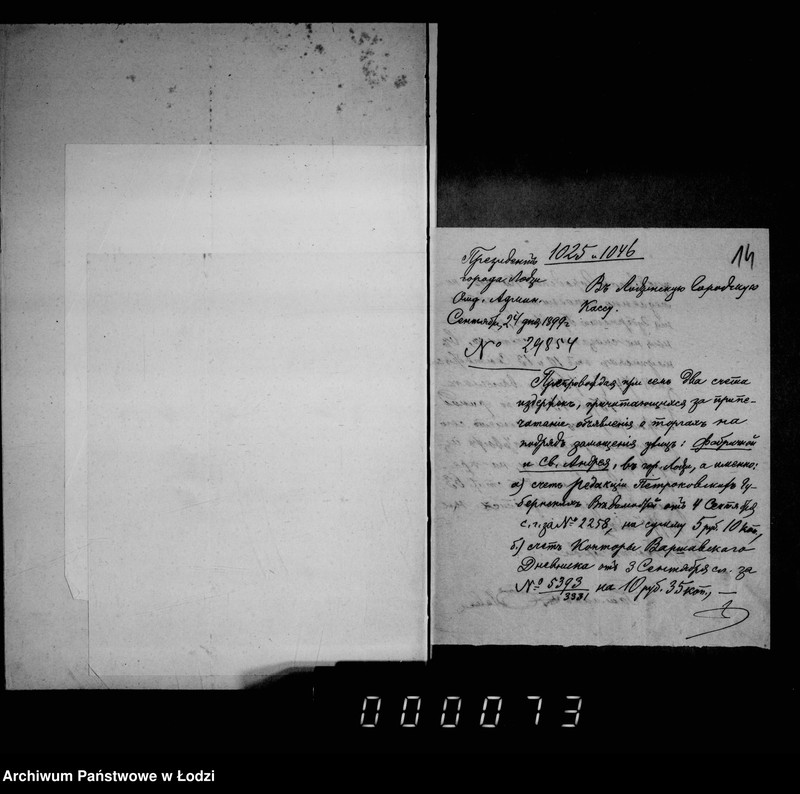 1025 и 1046
14
Президентъ
города Лодзи
Отд. Админ.
Сентября, 24 дня 1899 г.
№ 29854
Въ Лодзинскую Городскую
Кассу.
Препровождая при семъ два счета
издержекъ, причитающихся за припе-
чатаніе объявленія о торгахъ на
подрядъ замощенія улицъ: Фабричной
и Св. Андрея, въ гор. Лодзи, а именно:
а) счетъ редакціи Петроковскихъ Гу-
бернскихъ Вѣдомостей отъ 4 Сентября
с. г. за № 2258, на сумму 5 руб. 10 коп.,
б) счетъ Конторы Варшавскаго
Дневника отъ 3 Сентября за
№ 5393/3931 на 10 руб. 35 коп., —
000073
Archiwum Państwowe w Łodzi